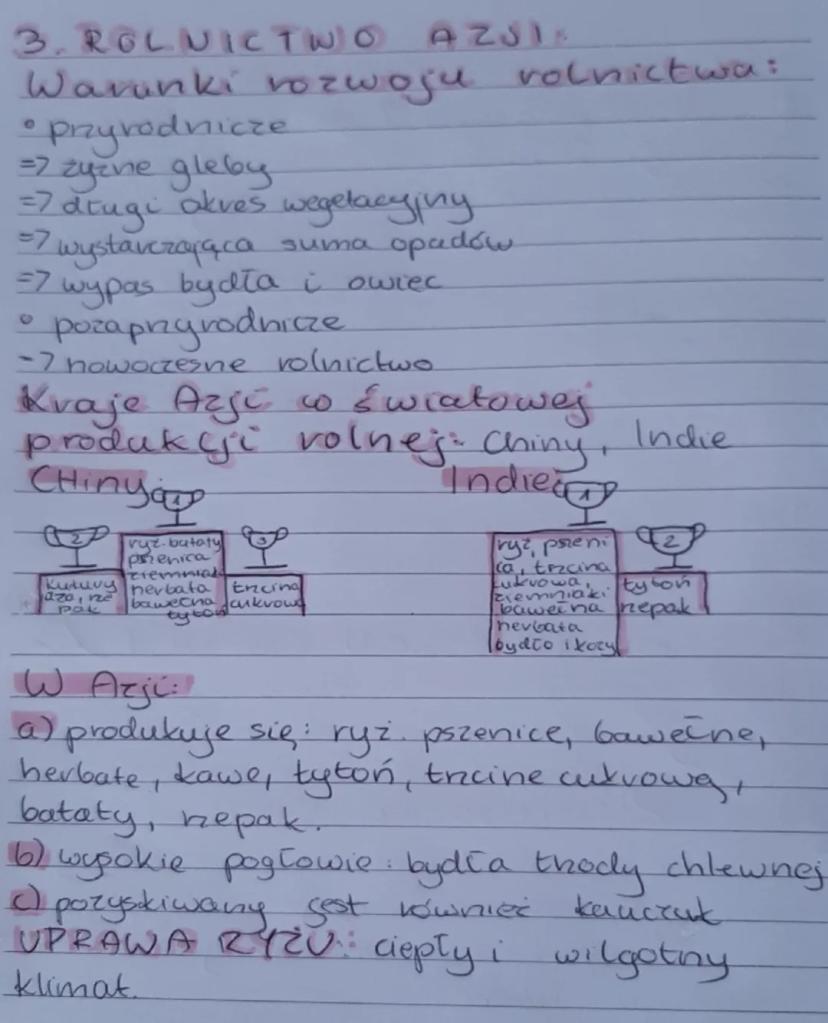 3. ROLNICTWO AZJI:
Warunki rozwoju rolnictwa:
• przyrodnicze
=> żyzne gleby
=> długi okres wegetacyjny
=> wystarczająca suma opadów
=> wypas bydła i owiec
• pozaprzyrodnicze
-> nowoczesne rolnictwo
Kraje Azji w światowej
produkcji rolnej: Chiny, Indie
CHiny:
1
2
3
ryż. bataty
pszenica
ziemniaki
herbata
bawełna
tytoń
kukury
dza, rze
pak
trzcina
cukrowa
Indie:
1
2
ryż, pszeni
ca, trzcina
cukrowa,
ziemniaki
bawełna
herbata
bydło i kozy
tytoń
rzepak
W Azji:
a) produkuje się: ryż. pszenice, bawełne,
herbate, kawe, tytoń, trzcine cukrową,
bataty, rzepak.
b) wysokie pogłowie: bydła trzody chlewnej
c) pozyskiwany jest również kauczuk
UPRAWA RYŻU: ciepły i wilgotny
klimat.